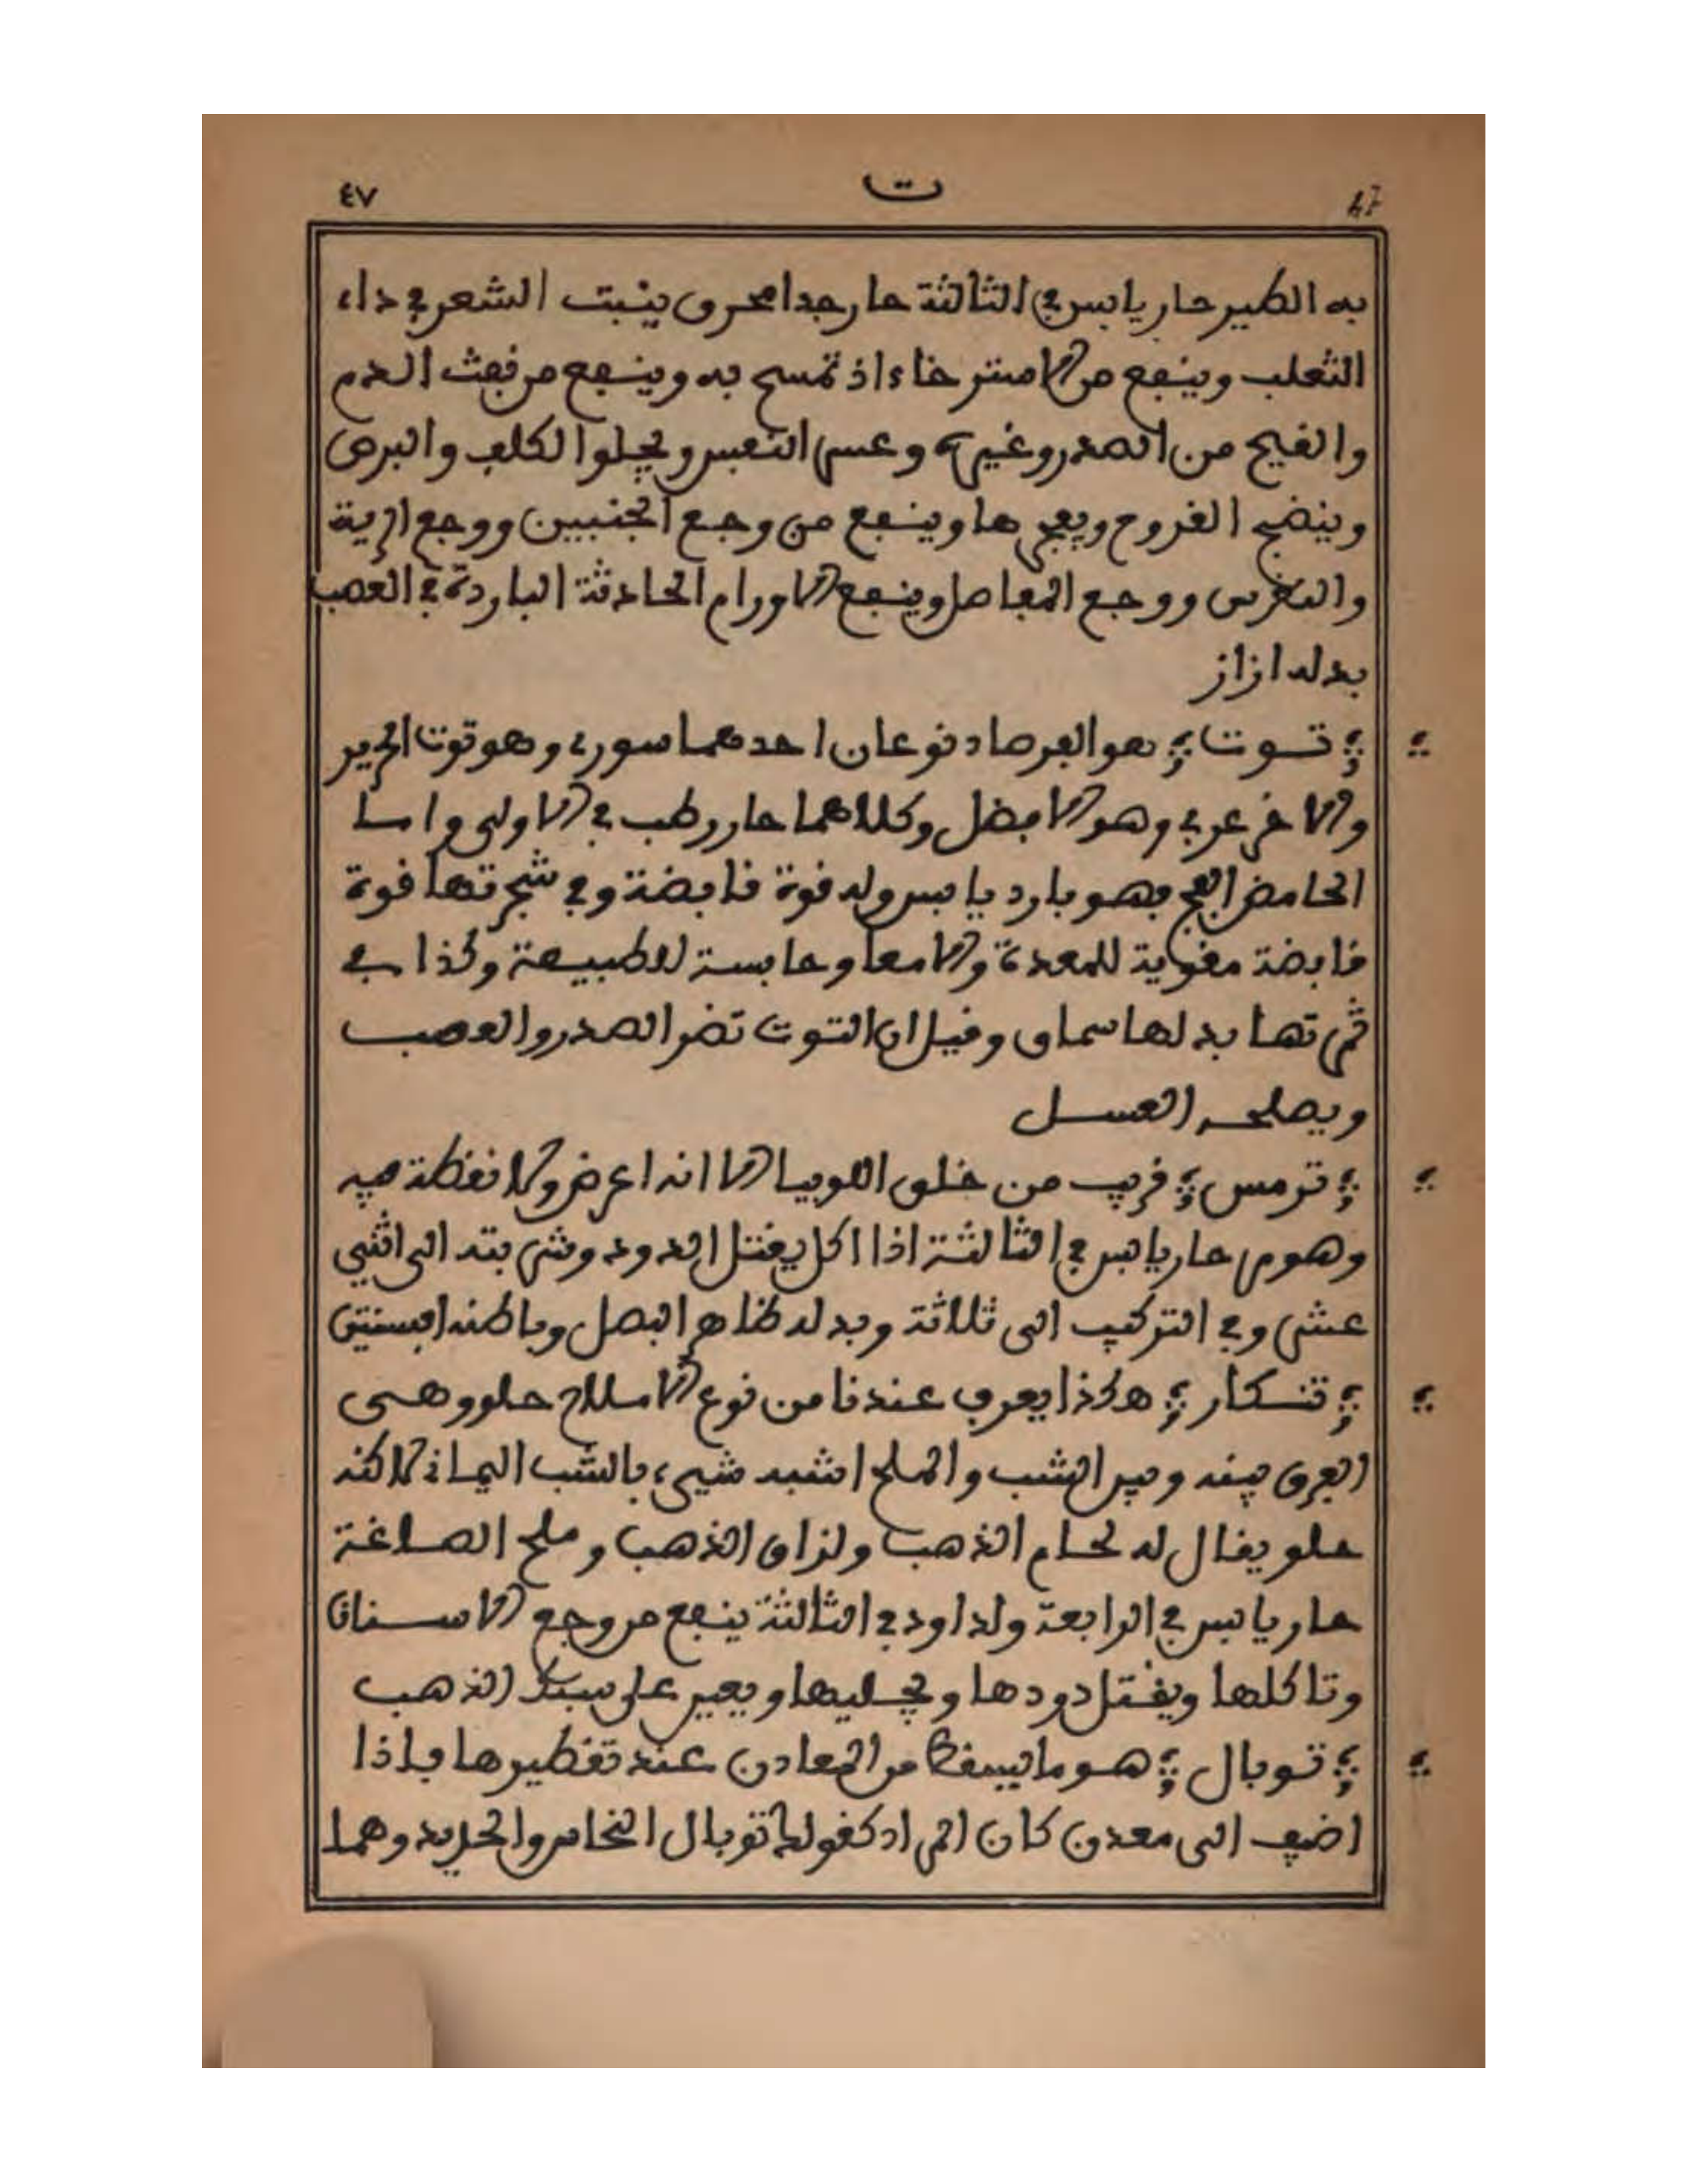 ٤٧ ت 47
به الطير حار يابس في الثالثة حار جدا محرق ينبت الشعر في داء
الثعلب وينفع من الاسترخاء اذ تمسح به وينفع من نفث الدم
والقيح من الصدر وغيره وعسر النفس ويجلوا الكلف والبرص
وينضج القروح ويفجرها وينفع من وجع الجنبين ووجع الرية
والنقرس ووجع المفاصل وينفع الاورام الحادثة الباردة في العصب
بدله ازاز
توت هو الفرصاد نوعان احدهما سوري وهو توت الحرير
والاخر عربي وهو الافضل وكلاهما حار رطب في الاولى واما
الحامض الفج فهو بارد يابس وله قوة قابضة وفي شجرتها قوة
قابضة مقوية للمعدة والامعا وحابسة للطبيعة وكذا في
ثمرتها بدلها سماق وقيل ان التوت تضر الصدر والعصب
ويصلحه العسل
ترمس قريب من خلق اللوبيا الا انه اعرض ولا نقطة فيه
وهو مر حار يابس في الثالثة اذا اكل يقتل الدود وشربته الى اثني
عشر وفي التركيب الى ثلاثة وبدله ظاهر البصل وباطنه افسنتين
تنكار هكذا يعرف عندنا من نوع الاملاح حلو وهي
الفرق بينه وبين الشب والملح اشبه شيء بالشب اليماني لاكنه
حلو يقال له لحام الذهب ولزاق الذهب وملح الصاغة
حار يابس في الرابعة ولداود في الثالثة ينفع من وجع الاسنان
وتاكلها ويقتل دودها ويجليها ويعين على سبك الذهب
توبال هو ما يسقط من المعادن عند تقطيرها فاذا
اضيف الى معدن كان المراد كقوله توبال النحاس والحديد وهما